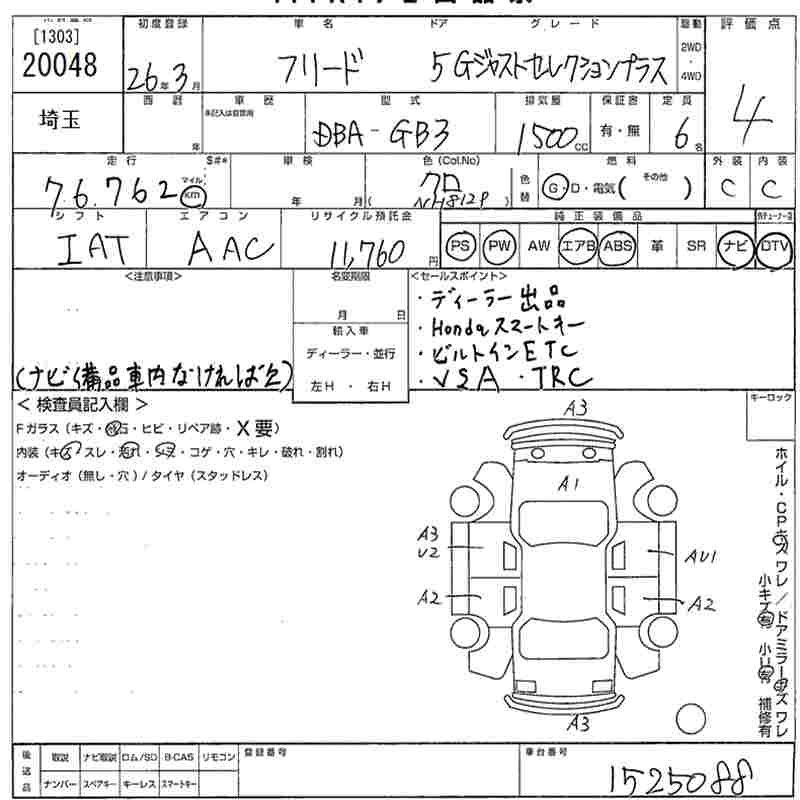 [1303]
20048
初度登録 車名 ドア グレード 駆動 評価点
26年3月 フリード 5 Gジャストセレクションプラス 2WD・4WD 4
埼玉
西暦 車歴 型式 排気量 保証書 定員
未記入は自家用
年 DBA-GB3 1500cc 有・無 6名
走行 S## 車検 色(Col.No) 燃料 外装 内装
76,762 マイル km 年 月 クロ 色替 G・D・電気( その他 ) C C
( NH812P )
シフト エアコン リサイクル預託金 純正装備品
IAT AAC 11,760円 PS PW AW エアB ABS 革 SR ナビ DTV
<注意事項> 名変期限 <セールスポイント>
月 日
・ディーラー出品
輸入車
・Hondaスマートキー
ディーラー・並行
・ビルトインETC
(ナビ備品車内なければ欠) 左H ・ 右H ・VSA ・TRC
< 検査員記入欄 > キーロック
Fガラス(キズ・飛石・ヒビ・リペア跡・X要)
内装(キズ・スレ・汚れ・シミ・コゲ・穴・キレ・破れ・割れ)
オーディオ(無し・穴)/タイヤ(スタッドレス)
A3
A1
A3
U2
AU1
A2
A2
A3
ホイル・CPキズワレ/ドアミラーキズワレ
小キズ有 小U有 補修有
後送品 取説 ナビ取説 ロム/SD B-CAS リモコン 登録番号 車台番号
ナンバー スペアキー キーレス スマートキー 1525088